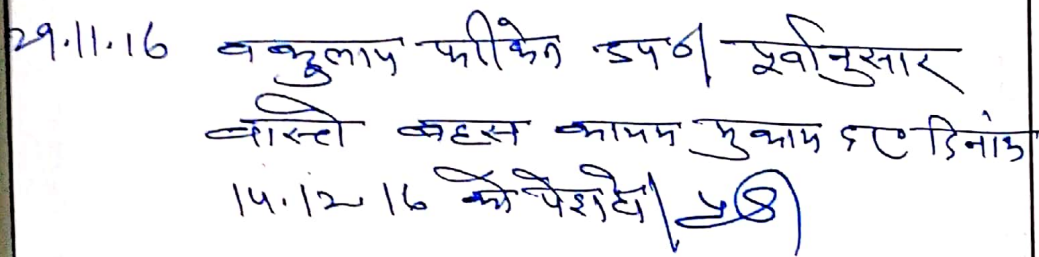 29.11.16 वकुलाय फरीकेन उप०। पूर्वानुसार
वास्ते बहस कायम मुकाम दिनांक
14.12.16 को पेश हो।